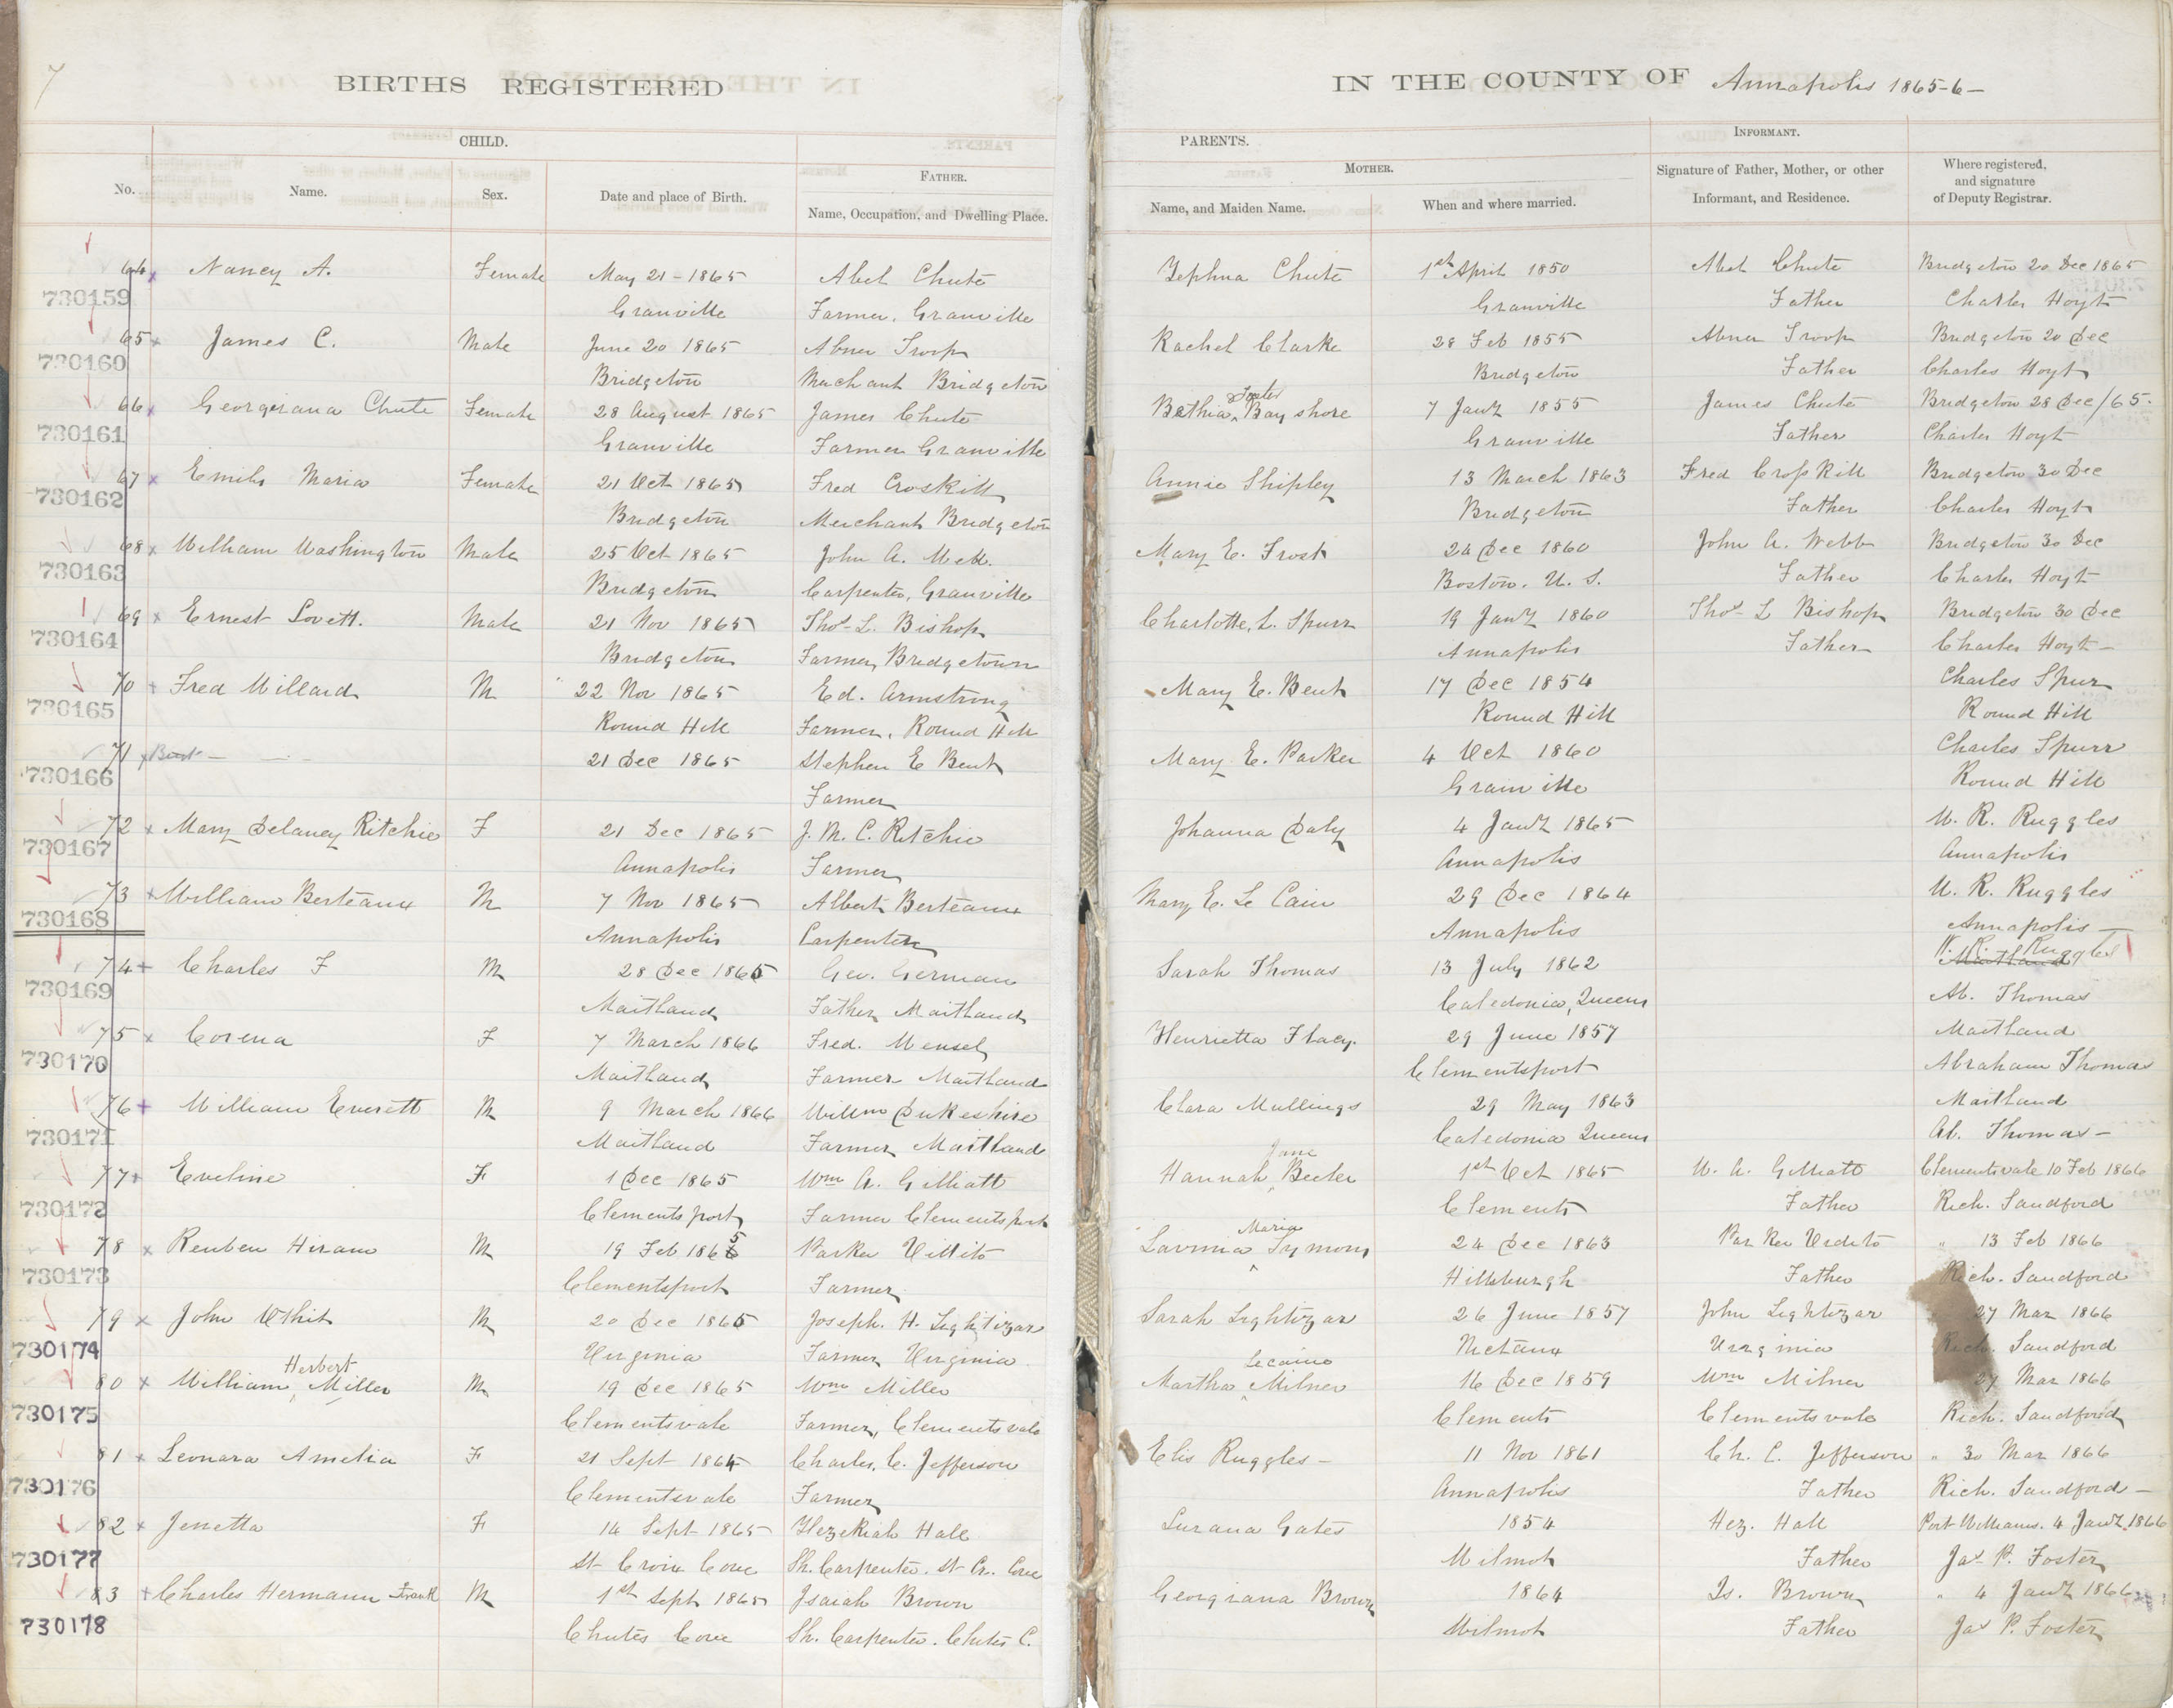 7
BIRTHS REGISTERED IN THE COUNTY OF Annapolis 1865-6-
CHILD. PARENTS. INFORMANT.
No. Name. Sex. Date and place of Birth. FATHER. Name, Occupation, and Dwelling Place. MOTHER. Name, and Maiden Name. When and where married. Signature of Father, Mother, or other Informant, and Residence. Where registered, and signature of Deputy Registrar.
64 Nancy A. Female May 21-1865 Abel Chute Zephna Chute 1st April 1850 Abel Chute Bridgeton 20 Dec 1865
730159 Granville Farmer, Granville Granville Father Charles Hoyt
65 James C. Male June 20 1865 Abner Troop Rachel Clarke 28 Feb 1855 Abner Troop Bridgeton 20 Dec
730160 Bridgeton Merchant Bridgeton Bridgeton Father Charles Hoyt
66 Georgirana Chute Female 28 August 1865 James Chute Bethia Foster Bayshore 7 Jany 1855 James Chute Bridgeton 28 Dec/65.
730161 Granville Farmer Granville Granville Father Charles Hoyt
67 Emily Maria Female 21 Oct 1865 Fred Croskill Annie Shipley 13 March 1863 Fred Crosskill Bridgeton 30 Dec
730162 Bridgeton Merchant Bridgeton Bridgeton Father Charles Hoyt
68 William Washington Male 25 Oct 1865 John A. Webb. Mary E. Frost 24 Dec 1860 John A. Webb Bridgeton 30 Dec
730163 Bridgeton Carpenter, Granville Boston. U. S. Father Charles Hoyt
69 Ernest Lovett. Male 21 Nov 1865 Thos. L. Bishop Charlotte, L. Spurr 19 Jany 1860 Thos L Bishop Bridgeton 30 Dec
730164 Bridgeton Farmer, Bridgetown Annapolis Father Charles Hoyt-
70 Fred Willard M 22 Nov 1865 Ed. Armstrong Mary E. Bent 17 Dec 1854 Charles Spur
730165 Round Hill Farmer, Round Hill Round Hill Round Hill
71 Bent - 21 Dec 1865 Stephen E Bent Mary E. Parker 4 Oct 1860 Charles Spurr
730166 Farmer Granville Round Hill
72 Mary Delaney Ritchie F 21 Dec 1865 J. M. C. Ritchie Johanna Daly 4 Jany 1865 W. R. Ruggles
730167 Annapolis Farmer Annapolis Annapolis
73 William Berteaux M 7 Nov 1865 Albert Berteaux Mary E. Le Cain 29 Dec 1864 W. R. Ruggles
730168 Annapolis Carpenter Annapolis Annapolis-
74 Charles F M 28 Dec 1865 Geo. German Sarah Thomas 13 July 1862 W. R. Ruggles Maitland
730169 Maitland Father Maitland Caledonia, Queens Ab. Thomas
75 Corena F 7 March 1866 Fred. Wensel Henrietta Flacy. 29 June 1857 Maitland
730170 Maitland Farmer Maitland Clementsport Abraham Thomas
76 William Everett M 9 March 1866 Willm Dukeshire Clara Mullings 29 May 1863 Maitland
730171 Maitland Farmer Maitland Caledonia Queens Ab. Thomas-
77 Eveline F 1 Dec 1865 Wm A. Gilliatt Hannah Jane Beeler 1st Oct 1865 W. A. Gilliatt Clementsvale 10 Feb 1866
730172 Clementsport Farmer Clementsport Clements Father Rich. Sandford
78 Reuben Hiram M 19 Feb 1865 Parker Vittito Lavinia Maria Symons 24 Dec 1863 Parker Verdito " 13 Feb 1866
730173 Clementsport Farmer Hillsburgh Father Rich. Sandford
79 John Whit M 20 Dec 1865 Joseph. H. Lightizar Sarah Lightizar 26 June 1857 John Lightizar 27 Mar 1866
730174 Virginia Farmer Virginia Nictaux Virginia Rich. Sandford
80 William Herbert Miller M 19 Dec 1865 Wm Miller Martha Lecaine Milner 16 Dec 1859 Wm Milner 27 Mar 1866
730175 Clementsvale Farmer, Clementsvale Clements Clementsvale Rich. Sandford
81 Leonara Amelia F 21 Sept 1864 Charles. C. Jefferson Elis Ruggles- 11 Nov 1861 Ch. C. Jefferson " 30 Mar 1866
730176 Clementsvale Farmer Annapolis Father Rich. Sandford-
82 Jenetta F 14 Sept 1865 Hezekiah Hall Lurana Gates 1854 Hez. Hall Port Williams. 4 Jany 1866
730177 St Croix Cove Sh. Carpenter. St Cr. Cove Wilmot Father Jas P. Foster
83 Charles Hermann Frank M 1st Sept 1865 Isaiah Brown Georgiana Brown 1864 Is. Brown " 4 Jany 1866
730178 Chutes Cove Sh. Carpenter. Chutes C. Wilmot Father Jas P. Foster